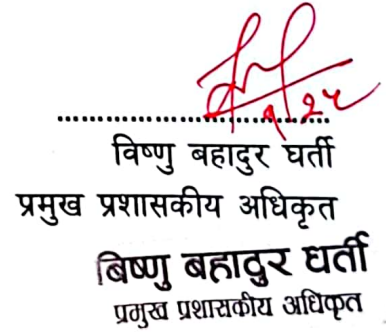 १।२५
....................................
विष्णु बहादुर घर्ती
प्रमुख प्रशासकीय अधिकृत
बिष्णु बहादुर घर्ती
प्रमुख प्रशासकीय अधिकृत